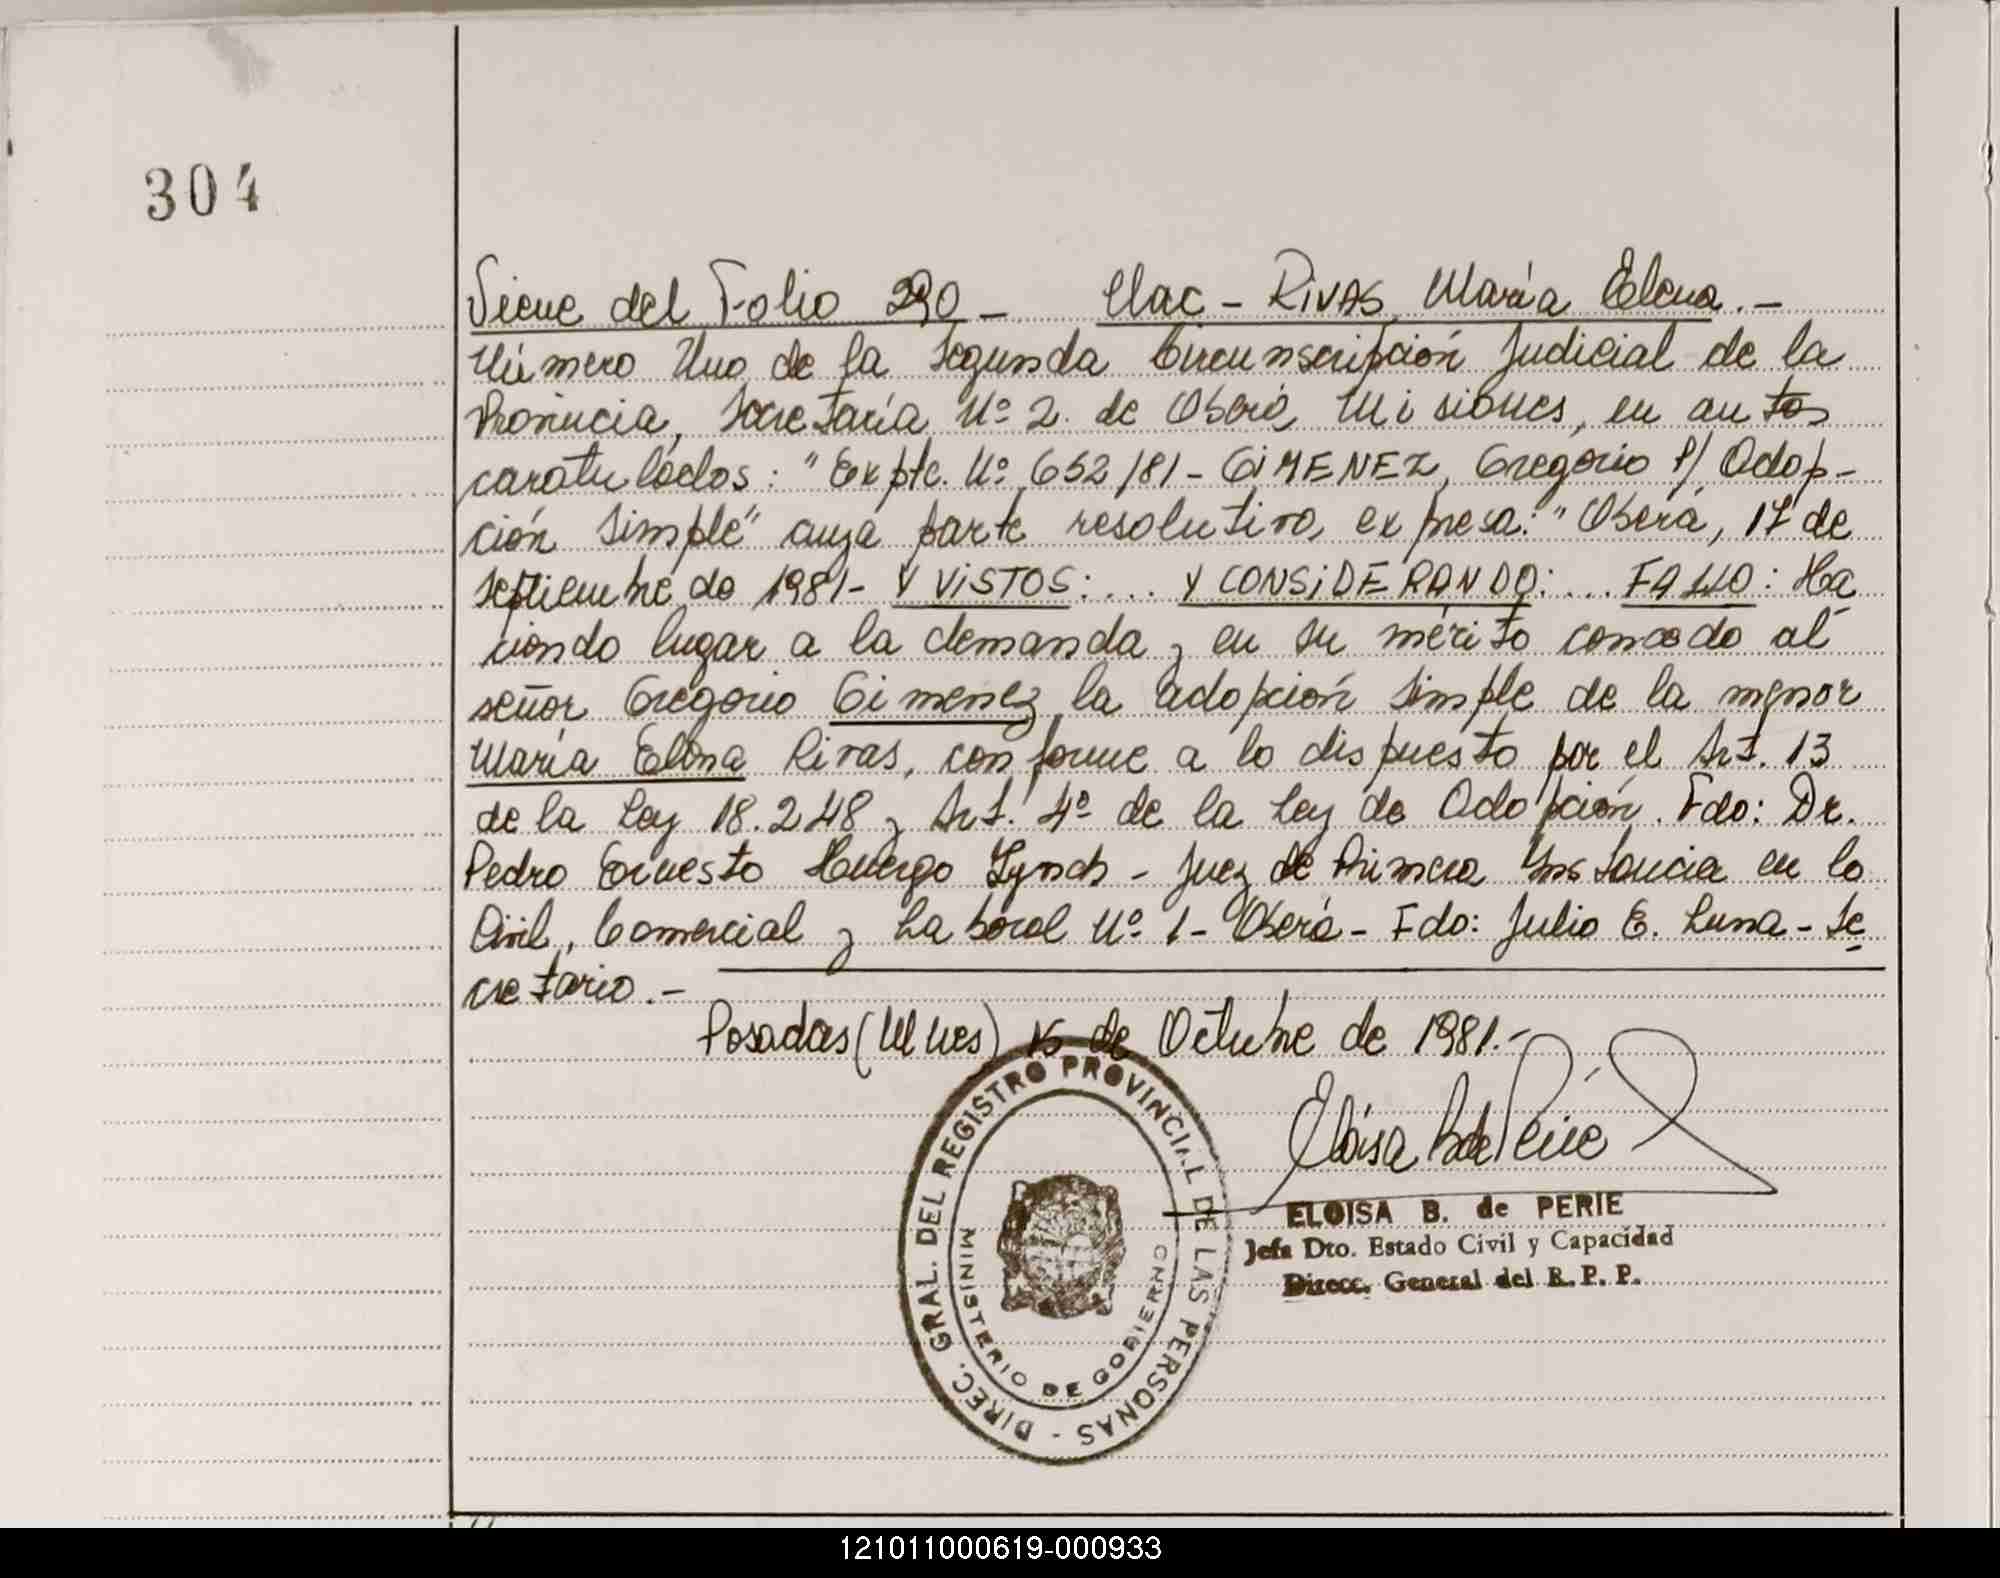 304
Viene del Folio 290 - Nac - RIVAS, María Elena. -
Número Uno de la Segunda Circunscripción Judicial de la
Provincia, Secretaría Nº 2. de Oberá, Misiones, en autos
caratulados: "Expte. Nº 652/81 - GIMENEZ, Gregorio P/ Adop-
ción Simple" cuya parte resolutiva, expresa: "Oberá, 17 de
Septiembre de 1981 - Y VISTOS: ... Y CONSIDERANDO: ... FALLO: Ha
ciendo lugar a la demanda y en su mérito concedo al
señor Gregorio Gimenez, la adopción simple de la menor
María Elena Rivas, conforme a lo dispuesto por el Art. 13
de la Ley 18.248 y Art. 4º de la Ley de Adopción. Fdo: Dr.
Pedro Ernesto Huergo Lynch - Juez de Primera Instancia en lo
Civil, Comercial y Laboral Nº 1 - Oberá - Fdo: Julio E. Luna - Se
cretario. -
Posadas (Mnes) 15 de Octubre de 1981. -
Eloisa B de Perié
ELOISA B. de PERIE
Jefa Dto. Estado Civil y Capacidad
Direcc. General del R. P. P.
DIREC. GRAL. DEL REGISTRO PROVINCIAL DE LAS PERSONAS -
MINISTERIO DE GOBIERNO
121011000619-000933